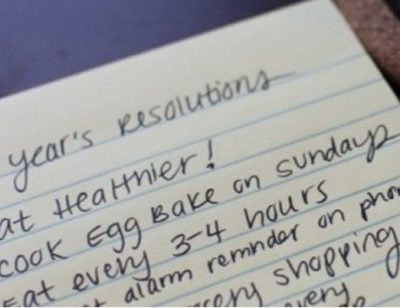 year's resolutions
at HeaHnier!
cook Egg Bake on sundays
Eat every 3-4 hours
alarm remindor on phon
cery shopping
very